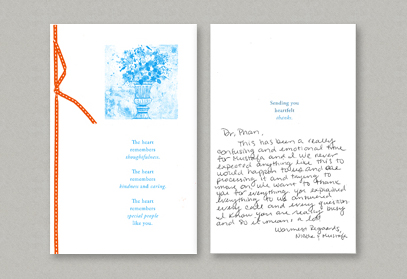 The heart
remembers
thoughtfulness.
The heart
remembers
kindness and caring.
The heart
remembers
special people
like you.
Sending you
heartfelt
thanks.
Dr. Phan,
This has been a really
confusing and emotional time
for Mustafa and I. We never
expected anything like this to
would happen to us and are
processing it and trying to
move on. We want to thank
you for everything you explained
everything to us answered
every call and every question
I know you are really busy
and so it means a lot
Warmest Regards,
Mustafa